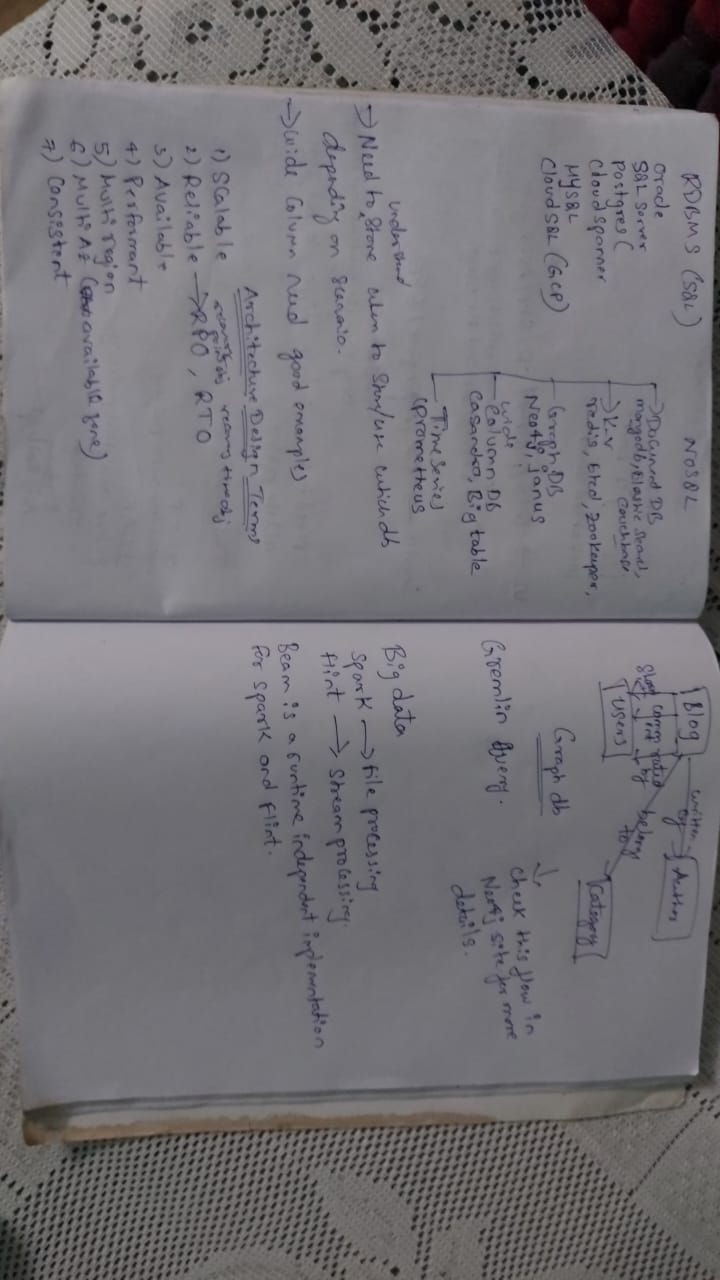 RDBMS (SQL)
Oracle
SQL Server
Postgres (
Cloud spanner
MYSQL
Cloud SQL (GCP)
NOSQL
→ Document DB
mongodb, Elastic Search,
Couchbase
→ K-V
redis, Etcd, Zookeeper,
Graph DB
Neo4j, janus
wide
Column DB
Casandra, Big table
Time Series
(Prometheus
understand
→ Need to, Store when to Store/use which db
depending on Scenario.
→ Wide Column need good examples
Architecture Design Terms
1) Scalable
recovery point obj recovery time obj
2) Reliable → RPO, RTO
3) Available
4) Performant
5) Multi region
6) Multi AZ ( available zone)
7) Consistent
Blog
written by
Author
Share
comment
rated by
belongs to
Users
Category
Graph db
↓
Check this flow in
Neo4j site for more
details.
Gremlin Query.
Big data
Spark → file processing
flint → Stream processing.
Beam is a runtime independent implementation
for spark and flint.